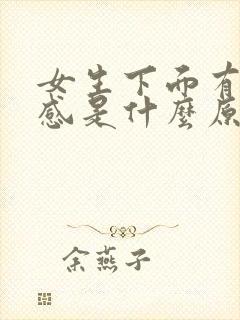 女生下面有
感是什麼原
余燕子